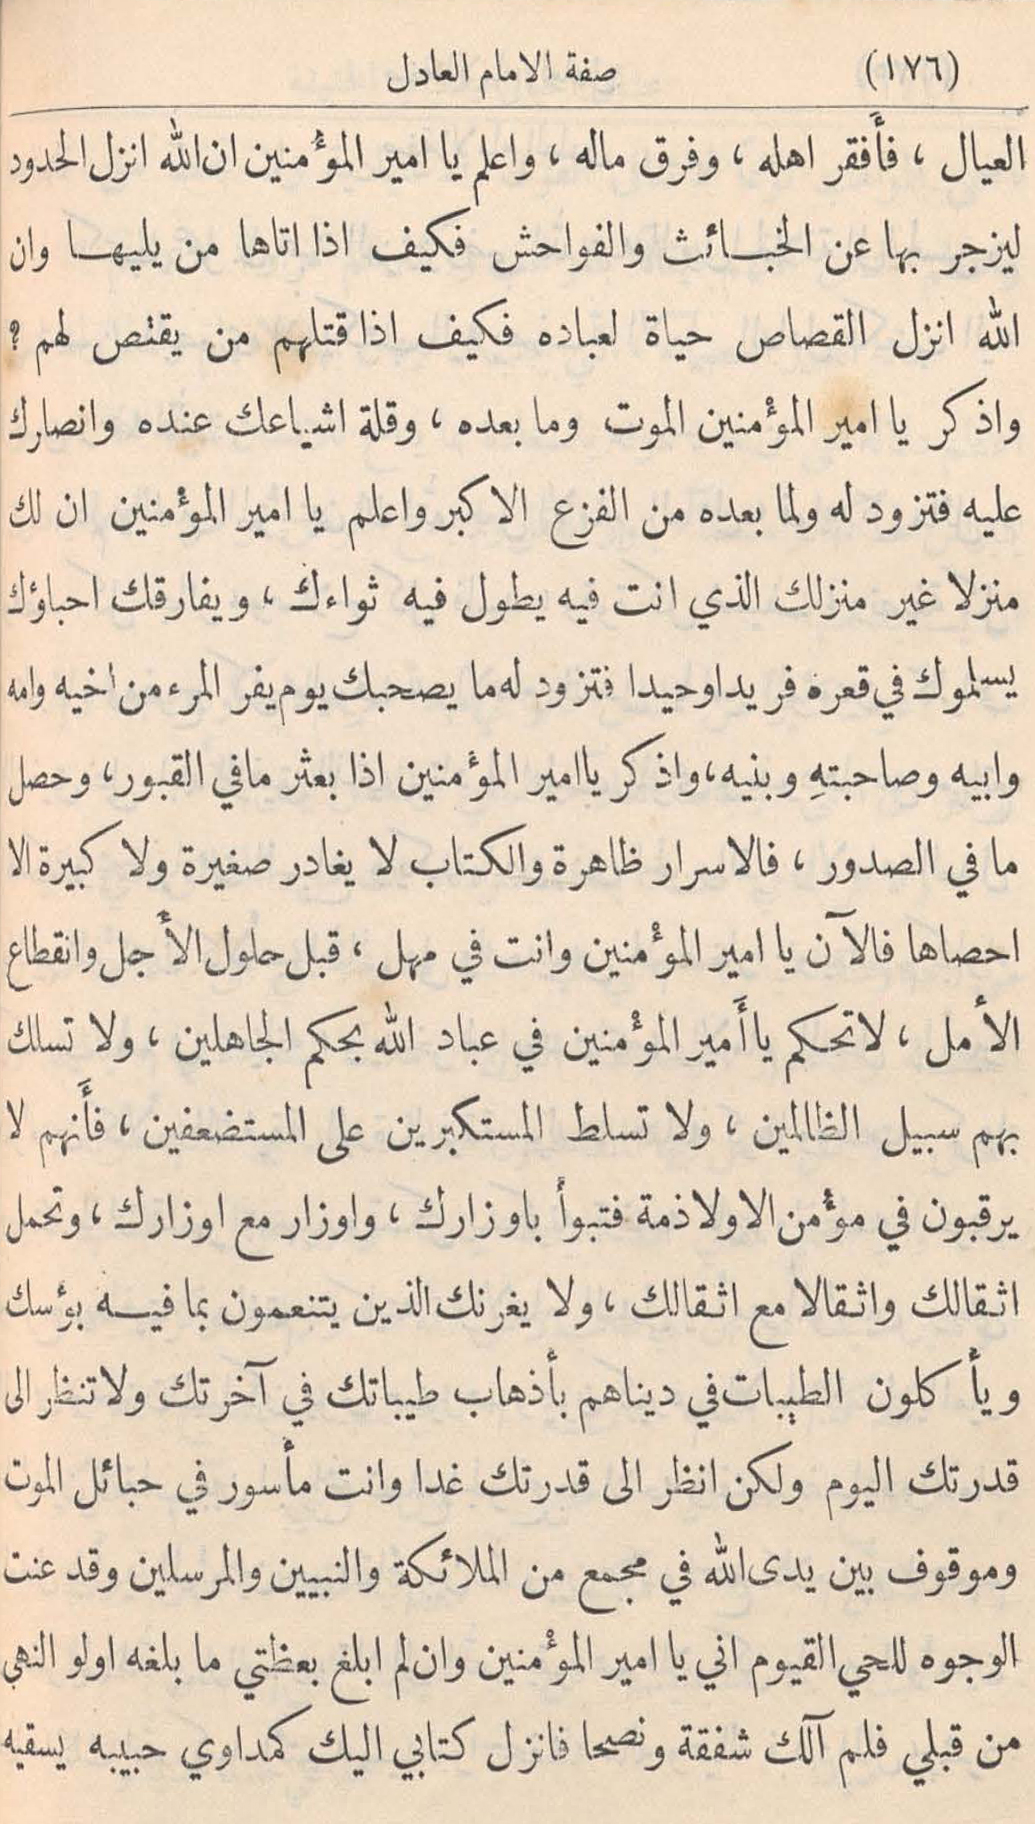 (١٧٦) صفة الامام العادل
العيال ، فأفقر اهله ، وفرق ماله ، واعلم يا امير المؤمنين ان الله انزل الحدود
ليزجر بها عن الخبائث والفواحش فكيف اذا اتاها من يليها وان
الله انزل القصاص حياة لعباده فكيف اذا قتلهم من يقتص لهم ؟
واذكر يا امير المؤمنين الموت وما بعده ، وقلة اشياعك عنده وانصارك
عليه فتزود له ولما بعده من الفزع الاكبر واعلم يا امير المؤمنين ان لك
منزلا غير منزلك الذي انت فيه يطول فيه ثواءك ، ويفارقك احباؤك
يسلموك في قعره فريدا وحيدا فتزود له ما يصحبك يوم يفر المرء من اخيه وامه
وابيه وصاحبتهِ وبنيه، واذكر يا امير المؤمنين اذا بعثر مافي القبور، وحصل
ما في الصدور ، فالاسرار ظاهرة والكتاب لا يغادر صغيرة ولا كبيرة الا
احصاها فالآن يا امير المؤمنين وانت في مهل ، قبل حلول الأجل وانقطاع
الأمل ، لا تحكم يا أمير المؤمنين في عباد الله بحكم الجاهلين ، ولا تسلك
بهم سبيل الظالمين ، ولا تسلط المستكبرين على المستضعفين ، فأنهم لا
يرقبون في مؤمن الا ولا ذمة فتبوأ باوزارك ، واوزار مع اوزارك ، وتحمل
اثقالك واثقالا مع اثقالك ، ولا يغرنك الذين يتنعمون بما فيه بؤسك
ويأكلون الطيبات في ديناهم بأذهاب طيباتك في آخرتك ولا تنظر الى
قدرتك اليوم ولكن انظر الى قدرتك غدا وانت مأسور في حبائل الموت
وموقوف بين يدى الله في مجمع من الملائكة والنبيين والمرسلين وقد عنت
الوجوه للحي القيوم اني يا امير المؤمنين وان لم ابلغ بعظتي ما بلغه اولو النهى
من قبلي فلم آلك شفقة ونصحا فانزل كتابي اليك كمداوي حبيبه يسقيه